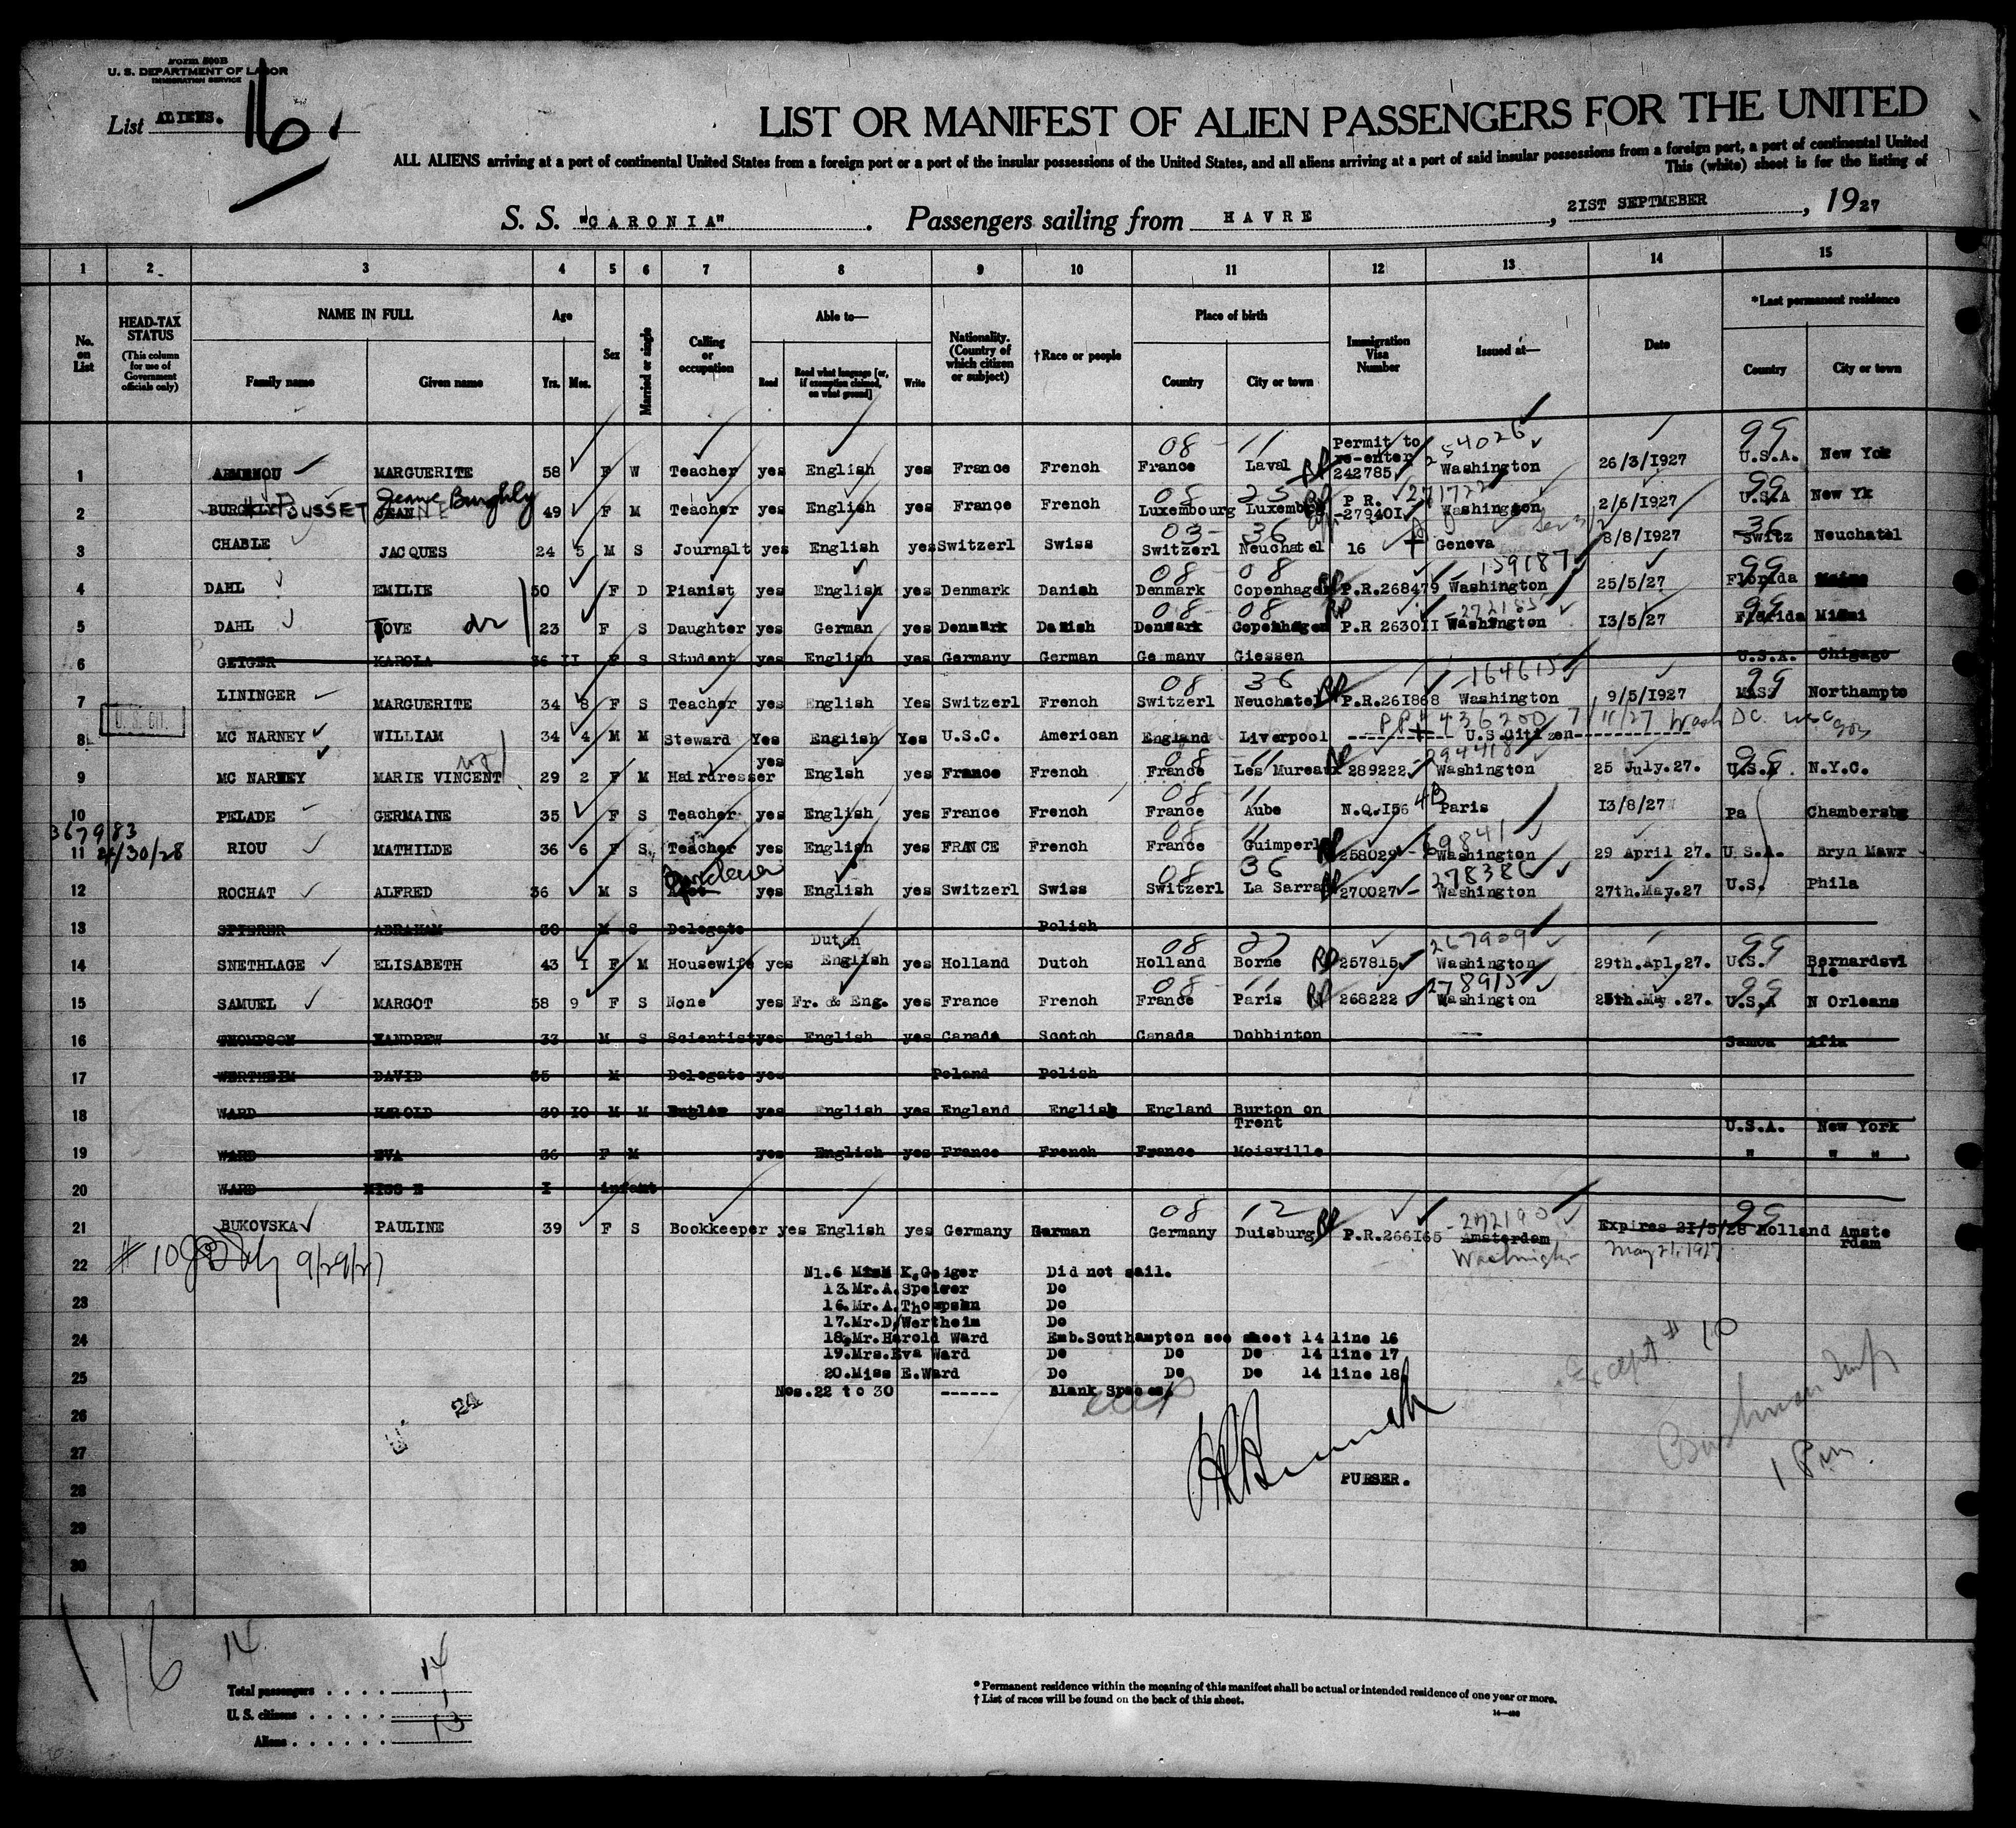 Form 500B
U. S. DEPARTMENT OF LABOR
IMMIGRATION SERVICE
List ALIENS. 16
LIST OR MANIFEST OF ALIEN PASSENGERS FOR THE UNITED
ALL ALIENS arriving at a port of continental United States from a foreign port or a port of the insular possessions of the United States, and all aliens arriving at a port of said insular possessions from a foreign port, a port of continental United
This (white) sheet is for the listing of
S. S. "CARONIA". Passengers sailing from HAVRE, 21ST SEPTMEBER, 1927
1 2 3 4 5 6 7 8 9 10 11 12 13 14 15
No. on List
HEAD-TAX STATUS (This column for use of Government officials only)
NAME IN FULL Family name Given name
Age Yrs. Mos.
Sex
Married or single
Calling or occupation
Able to— Read Read what language [or, if exemption claimed, on what ground] Write
Nationality. (Country of which citizen or subject)
†Race or people
Place of birth Country City or town
Immigration Visa Number
Issued at—
Date
*Last permanent residence Country City or town
08 11 Permit to 254026 99
1 MARGUERITE 58 F W Teacher yes English yes France French France Laval re-enter 242785 Washington 26/3/1927 U.S.A. New Yok
Jeanne Burghly 08 25 271722 99
2 BURGHLY POUSSET JEAN 49 F M Teacher yes English yes France French Luxembourg Luxembourg P R. -279401 Washington 2/6/1927 U.S.A New Yk
03- 36 36
3 CHABLE JACQUES 24 5 M S Journalt yes English yes Switzerl Swiss Switzerl Neuchatel 16 Geneva 8/8/1927 Switz Neuchatel
08 08 -159187 99
4 DAHL EMILIE 50 F D Pianist yes English yes Denmark Danish Denmark Copenhagen P.R.268479 Washington 25/5/27 Florida
08- 08 -272185 99
5 DAHL TOVE 23 F S Daughter yes German yes Denmark Danish Denmark Copenhagen P.R 263011 Washington 13/5/27 Florida Miami
6 GEIGER KAROLA 36 11 F S Student yes English yes Germany German Ge many Giessen U.S.A. Chigago
08 36 -164615 99
7 LININGER MARGUERITE 34 8 F S Teacher yes English Yes Switzerl French Switzerl Neuchatel P.R.261868 Washington 9/5/1927 MASS Northampto
U. S. CIT. PP# 436200 7/11/27 Wash DC
8 MC NARNEY WILLIAM 34 4 M M Steward Yes English Yes U.S.C. American England Liverpool U.S.Citizen
08 11 294418 99
9 MC NARNEY MARIE VINCENT 29 2 F M Hairdresser yes Englsh yes France French France Les Mureaux 289222 Washington 25 July.27. U.S.A. N.Y.C.
08 11
10 PELADE GERMAINE 35 F S Teacher yes English yes France French France Aube N.Q.156 4B Paris 13/8/27 Pa Chambersbg
367983 08 11 69841
11 4/30/28 RIOU MATHILDE 36 6 F S Teacher yes English yes FRANCE French France Guimperl 258029 Washington 29 April 27. U.S.A. Bryn Mawr
08 36 278386
12 ROCHAT ALFRED 36 M S yes English yes Switzerl Swiss Switzerl La Sarraz 270027 Washington 27th.May.27 U.S. Phila
13 SPIERER ABRAHAM 30 M S Delegate Polish
Dutch 08 27 267909 99
14 SNETHLAGE ELISABETH 43 1 F M Housewife yes English yes Holland Dutch Holland Borne 257815 Washington 29th.Apl.27. U.S. Bernardsvi lle
08- 11 278915 99
15 SAMUEL MARGOT 58 9 F S None yes Fr. & Eng. yes France French France Paris 268222 Washington 25th.May.27. U.S.A N Orleans
16 THOMPSON XANDREW 33 M S Scientist yes English yes Canada Scotch Canada Dobbinton Samoa Afia
17 WERTHEIM DAVID 35 M Delegate yes Poland Polish
18 WARD HAROLD 39 10 M M Butler yes English yes England English England Burton on Trent U.S.A. New York
19 WARD EVA 36 F M yes English yes France French France Moisville " " "
20 WARD MISS E 1 infant
08 12 272190 99
21 BUKOVSKA PAULINE 39 F S Bookkeeper yes English yes Germany German Germany Duisburg P.R.266165 Amsterdam Expires 21/5/28 Holland Amste rdam
May 21, 1927
# 10 9/29/27
22
N1.6 Miss K.Geiger Did not sail.
13.Mr.A.Speirer Do
23 16.Mr.A.Thompson Do
17.Mr.D.Wertheim Do
24 18.Mr.Harold Ward Emb.Southampton see sheet 14 line 16
19.Mrs.Eva Ward Do Do Do 14 line 17
25 20.Miss E.Ward Do Do Do 14 line 18
Nos.22 to 30 ------ Blank Spaces.
Except # 10
24
26
27
1 Pm.
PURSER.
28
29
30
16
14
Total passengers . . . . 14
U. S. citizens . . . . . 1
Aliens . . . . . . 13
* Permanent residence within the meaning of this manifest shall be actual or intended residence of one year or more.
† List of races will be found on the back of this sheet.